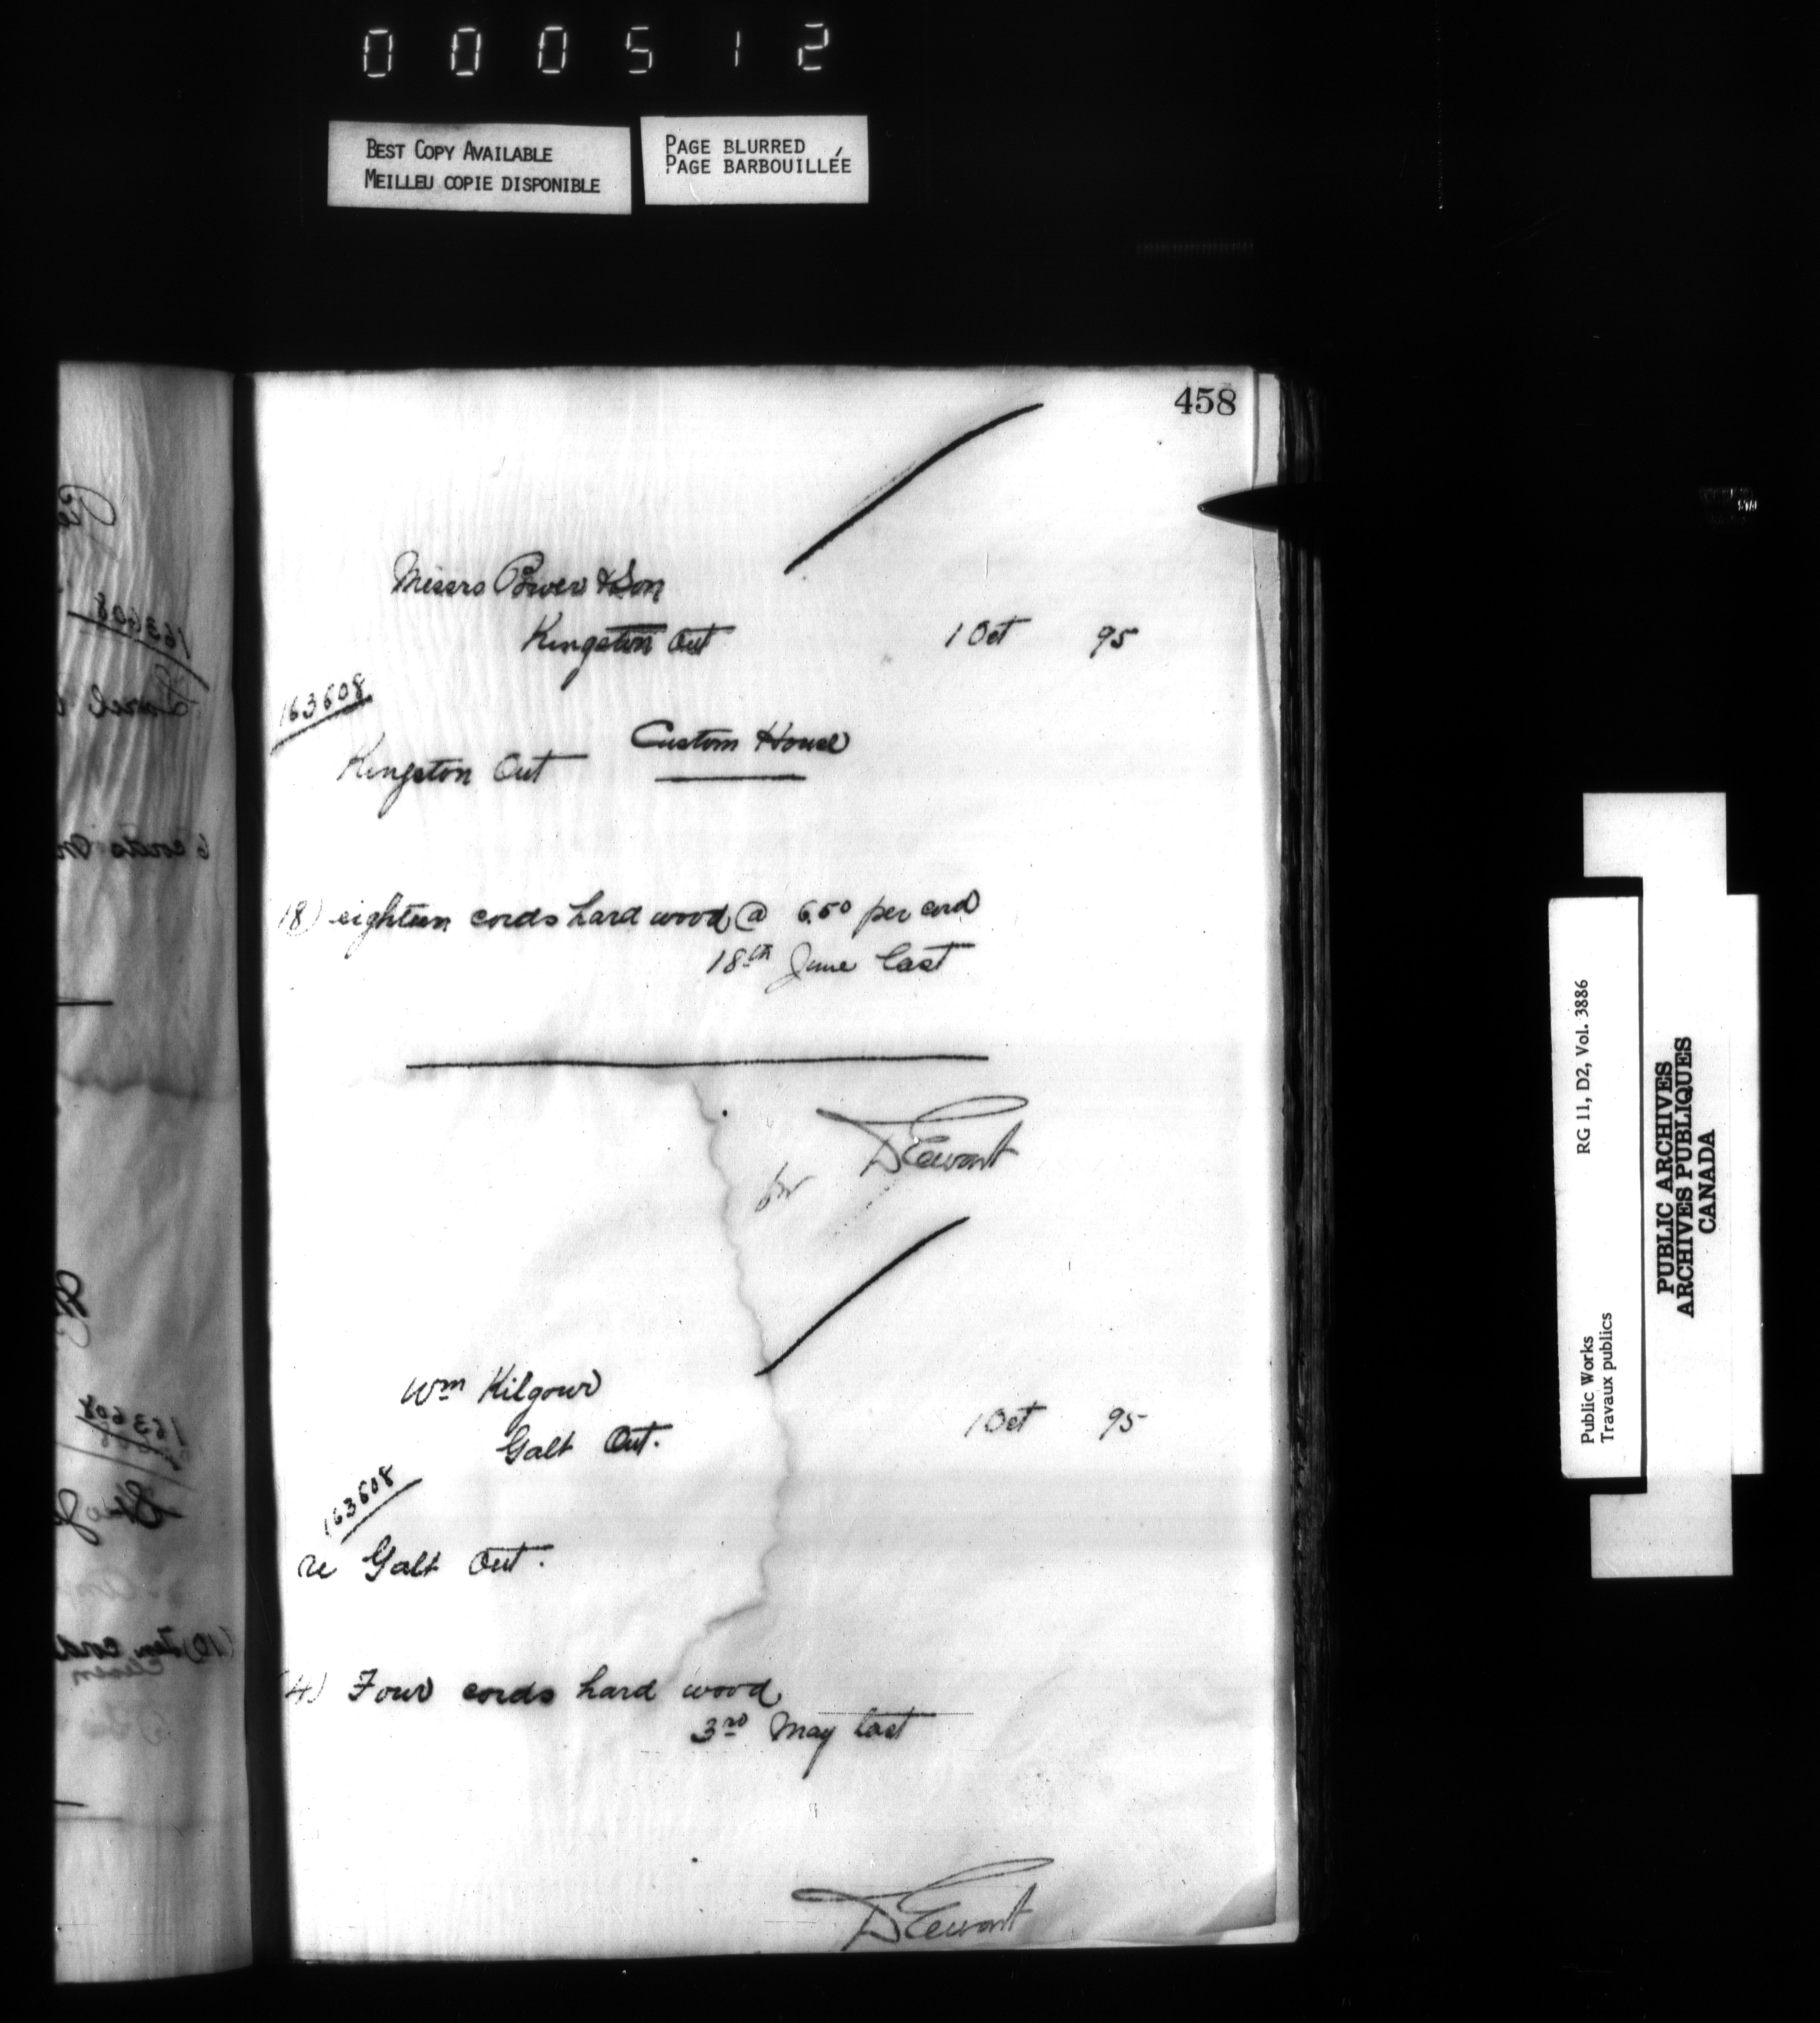 000512
BEST COPY AVAILABLE
MEILLEU COPIE DISPONIBLE
PAGE BLURRED
PAGE BARBOUILLÉE
458
Messrs Power & Son
Kingston Ont
1 Oct 95
163608
Kingston Ont Custom House
(18) eighteen cords hard wood @ 6.50 per cord
18th June last
for DEwart
Wm Kilgour
Galt Ont.
1 Oct 95
163608
re Galt Ont.
(4) Four cords hard wood
3rd May last
DEwart
163608
163608
Public Works
Travaux publics
RG 11, D2, Vol. 3886
PUBLIC ARCHIVES
ARCHIVES PUBLIQUES
CANADA